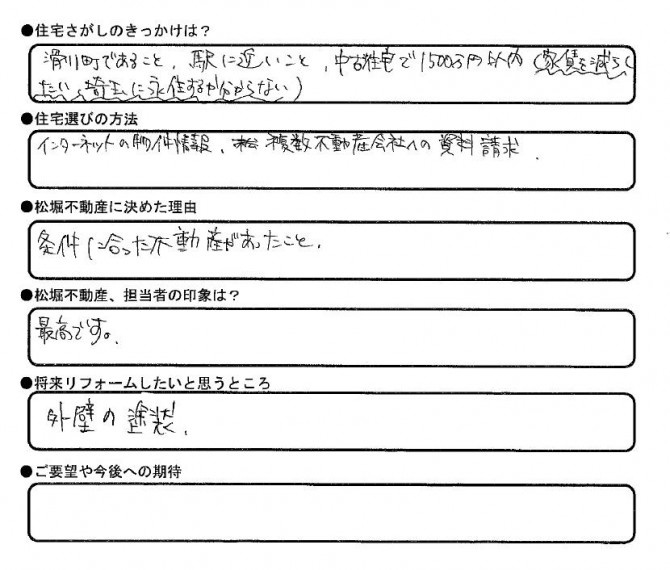 ●住宅さがしのきっかけは？
滑川町であること、駅に近いこと、中古住宅で1500万円以内（家賃を減らし
たい、埼玉に永住するか分からない）
●住宅選びの方法
インターネットの物件情報、複数不動産会社への資料請求．
●松堀不動産に決めた理由
条件に合った不動産があったこと．
●松堀不動産、担当者の印象は？
最高です。
●将来リフォームしたいと思うところ
外壁の塗装．
●ご要望や今後への期待